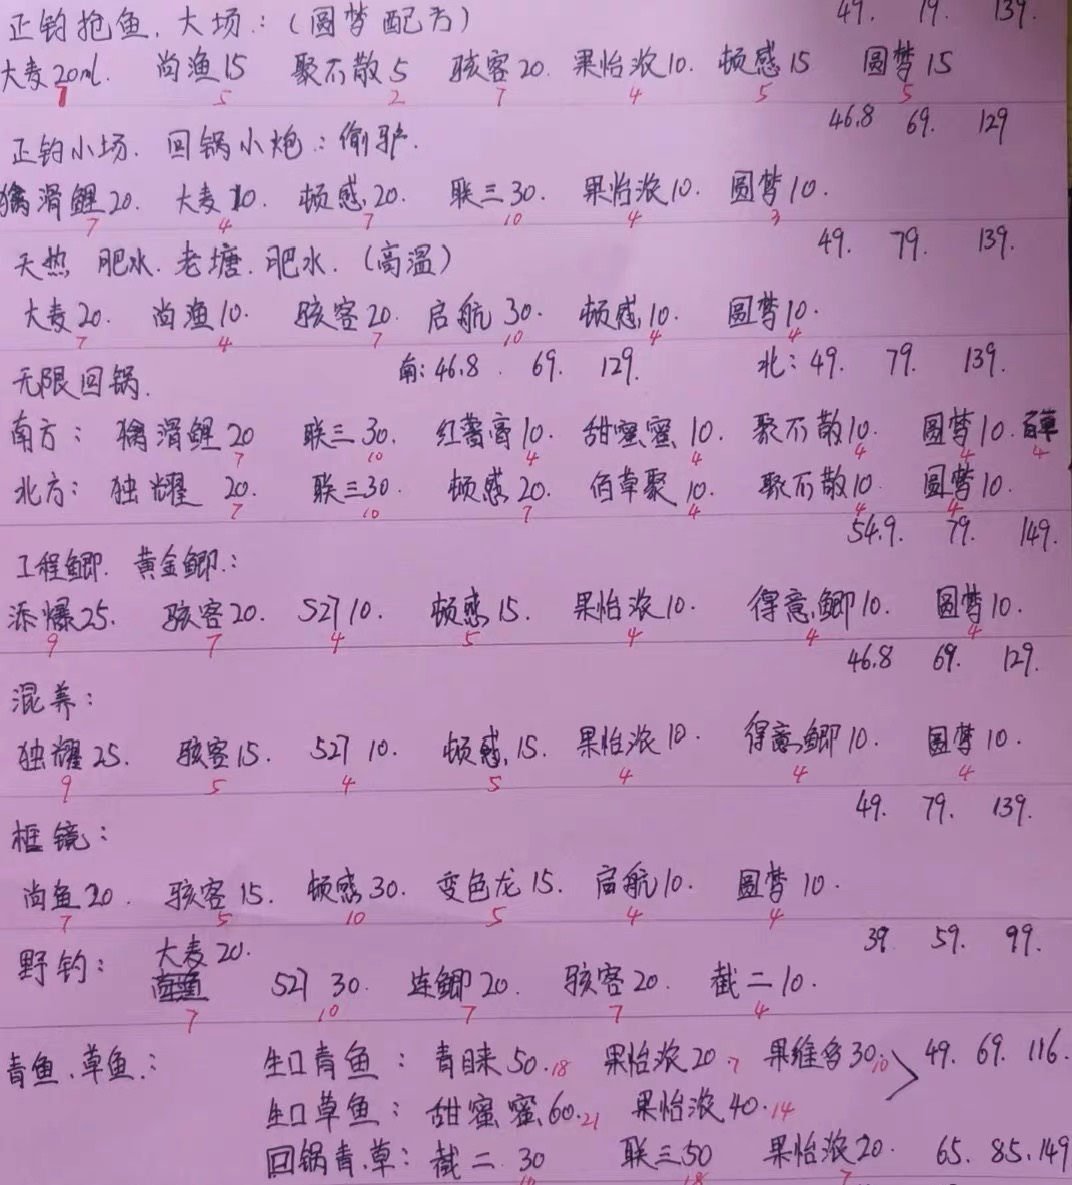 正钓抢鱼.大场:(圆梦配方) 49. 79. 139.
大麦20ml. 尚渔15 聚不散5 骇客20. 果怡浓10. 顿感15 圆梦15
7 5 2 7 4 5 5
46.8 69. 129
正钓小场. 回锅小炮:偷驴.
擒滑鲤20. 大麦10. 顿感20. 联三30. 果怡浓10. 圆梦10.
7 4 7 10 4 3
49. 79. 139.
天热 肥水.老塘.肥水.(高温)
大麦20. 尚渔10. 骇客20. 启航30. 顿感10. 圆梦10.
7 4 7 10 4 4
无限回锅. 南:46.8. 69. 129. 北:49. 79. 139.
南方:擒滑鲤20 联三30. 红薯膏10. 甜蜜蜜10. 聚不散10. 圆梦10. 百草
7 10 4 4 4 4 4
北方:独耀20. 联三30. 顿感20. 佰草聚10. 聚不散10. 圆梦10.
7 10 7 4 4 4
54.9. 79. 149.
工程鲫.黄金鲫.:
添爆25. 骇客20. 527 10. 顿感15. 果怡浓10. 得意鲫10. 圆梦10.
9 7 4 5 4 4 4
46.8 69. 129.
混养:
独耀25. 骇客15. 527 10. 顿感15. 果怡浓10. 得意鲫10. 圆梦10.
9 5 4 5 4 4 4
49. 79. 139.
框镜:
尚鱼20. 骇客15. 顿感30. 变色龙15. 启航10. 圆梦10.
7 5 10 5 4 4
39 59. 99.
野钓:大麦20. 527 30. 连鲫20. 骇客20. 截二10.
7 10 7 7 4
青鱼.草鱼.: 生口青鱼:青睐50.18 果怡浓20.7 果维多30.10 49. 69. 116.
生口草鱼:甜蜜蜜60.21 果怡浓40.14
回锅青.草:截二30 联三50 果怡浓20. 65. 85. 149
10 18 7